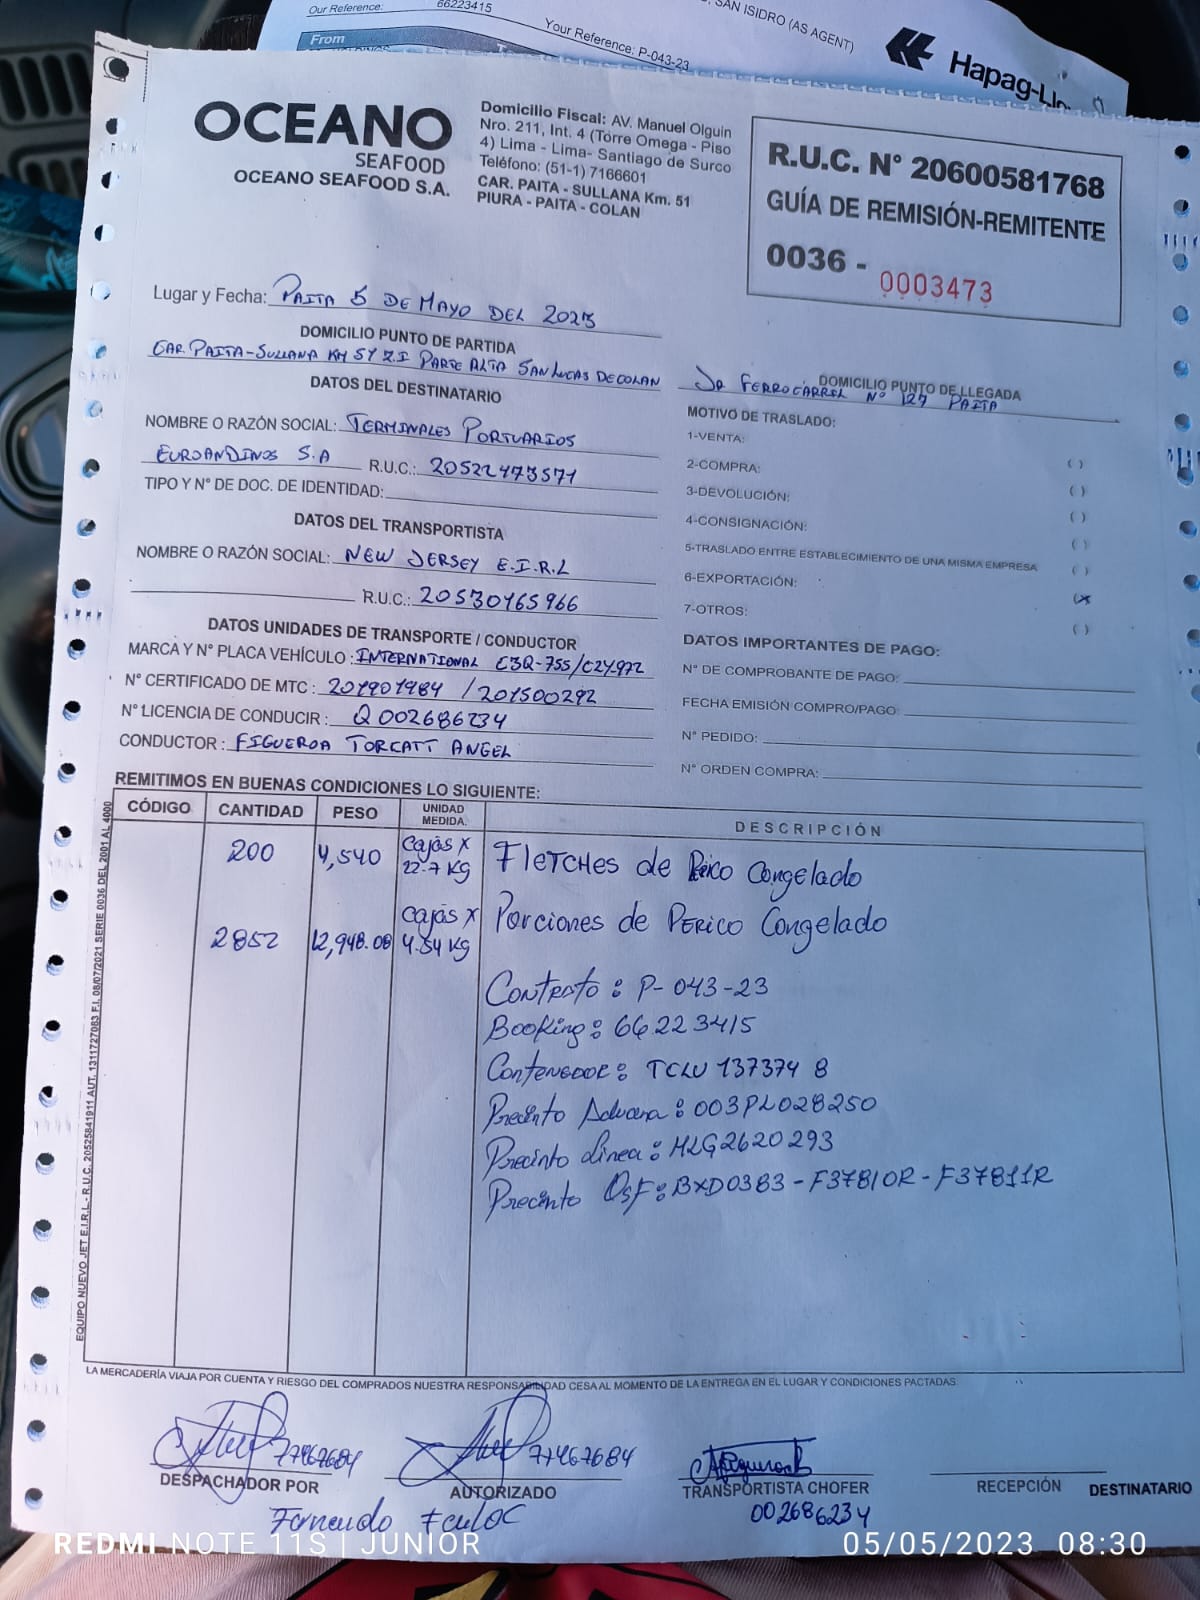 Our Reference: 66223415
Your Reference: P-043-23
SAN ISIDRO (AS AGENT)
From
Hapag-Llo
OCEANO
SEAFOOD
OCEANO SEAFOOD S.A.
Domicilio Fiscal: AV. Manuel Olguin
Nro. 211, Int. 4 (Torre Omega - Piso
4) Lima - Lima- Santiago de Surco
Teléfono: (51-1) 7166601
CAR. PAITA - SULLANA Km. 51
PIURA - PAITA - COLAN
R.U.C. N° 20600581768
GUÍA DE REMISIÓN-REMITENTE
0036 - 0003473
Lugar y Fecha: PAITA 5 DE MAYO DEL 2023
DOMICILIO PUNTO DE PARTIDA
CAR. PAITA-SULLANA KM 57 Z.I PARTE ALTA SAN LUCAS DE COLAN
DOMICILIO PUNTO DE LLEGADA
JR FERROCARRIL N° 127 PAITA
DATOS DEL DESTINATARIO
NOMBRE O RAZÓN SOCIAL: TERMINALES PORTUARIOS
EUROANDINOS S.A R.U.C.: 20522473571
TIPO Y N° DE DOC. DE IDENTIDAD:
DATOS DEL TRANSPORTISTA
NOMBRE O RAZÓN SOCIAL: NEW JERSEY E.I.R.L
R.U.C.: 20530165966
DATOS UNIDADES DE TRANSPORTE / CONDUCTOR
MARCA Y N° PLACA VEHÍCULO: INTERNATIONAL C3Q-755/C2Y-972
N° CERTIFICADO DE MTC: 201901984 / 201500292
N° LICENCIA DE CONDUCIR: Q002686234
CONDUCTOR: FIGUEROA TORCATT ANGEL
MOTIVO DE TRASLADO:
1-VENTA: ( )
2-COMPRA: ( )
3-DEVOLUCIÓN: ( )
4-CONSIGNACIÓN: ( )
5-TRASLADO ENTRE ESTABLECIMIENTO DE UNA MISMA EMPRESA ( )
6-EXPORTACIÓN: (x
7-OTROS: ( )
DATOS IMPORTANTES DE PAGO:
N° DE COMPROBANTE DE PAGO:
FECHA EMISIÓN COMPRO/PAGO:
N° PEDIDO:
N° ORDEN COMPRA:
REMITIMOS EN BUENAS CONDICIONES LO SIGUIENTE:
CÓDIGO CANTIDAD PESO UNIDAD MEDIDA. DESCRIPCIÓN
200 4,540 Cajas x 22.7 KG Fletches de Perico Congelado
2852 12,948.08 Cajas x 4.54 KG Porciones de Perico Congelado
Contrato: P-043-23
Booking: 66223415
Contenedor: TCLU 137374 8
Precinto Aduana: 003PL028250
Precinto Linea: HLG2620293
Precinto Osf: BXD0383 - F37810R - F37811R
EQUIPO NUEVO JET E.I.R.L.- R.U.C. 20525841911 AUT. 1311727083 F.I. 08/07/2021 SERIE 0036 DEL 2001 AL 4000
LA MERCADERÍA VIAJA POR CUENTA Y RIESGO DEL COMPRADOS NUESTRA RESPONSABILIDAD CESA AL MOMENTO DE LA ENTREGA EN EL LUGAR Y CONDICIONES PACTADAS.
77467684 77467684
DESPACHADOR POR AUTORIZADO TRANSPORTISTA CHOFER RECEPCIÓN DESTINATARIO
Fernando
002686234
REDMI NOTE 11S | JUNIOR 05/05/2023 08:30